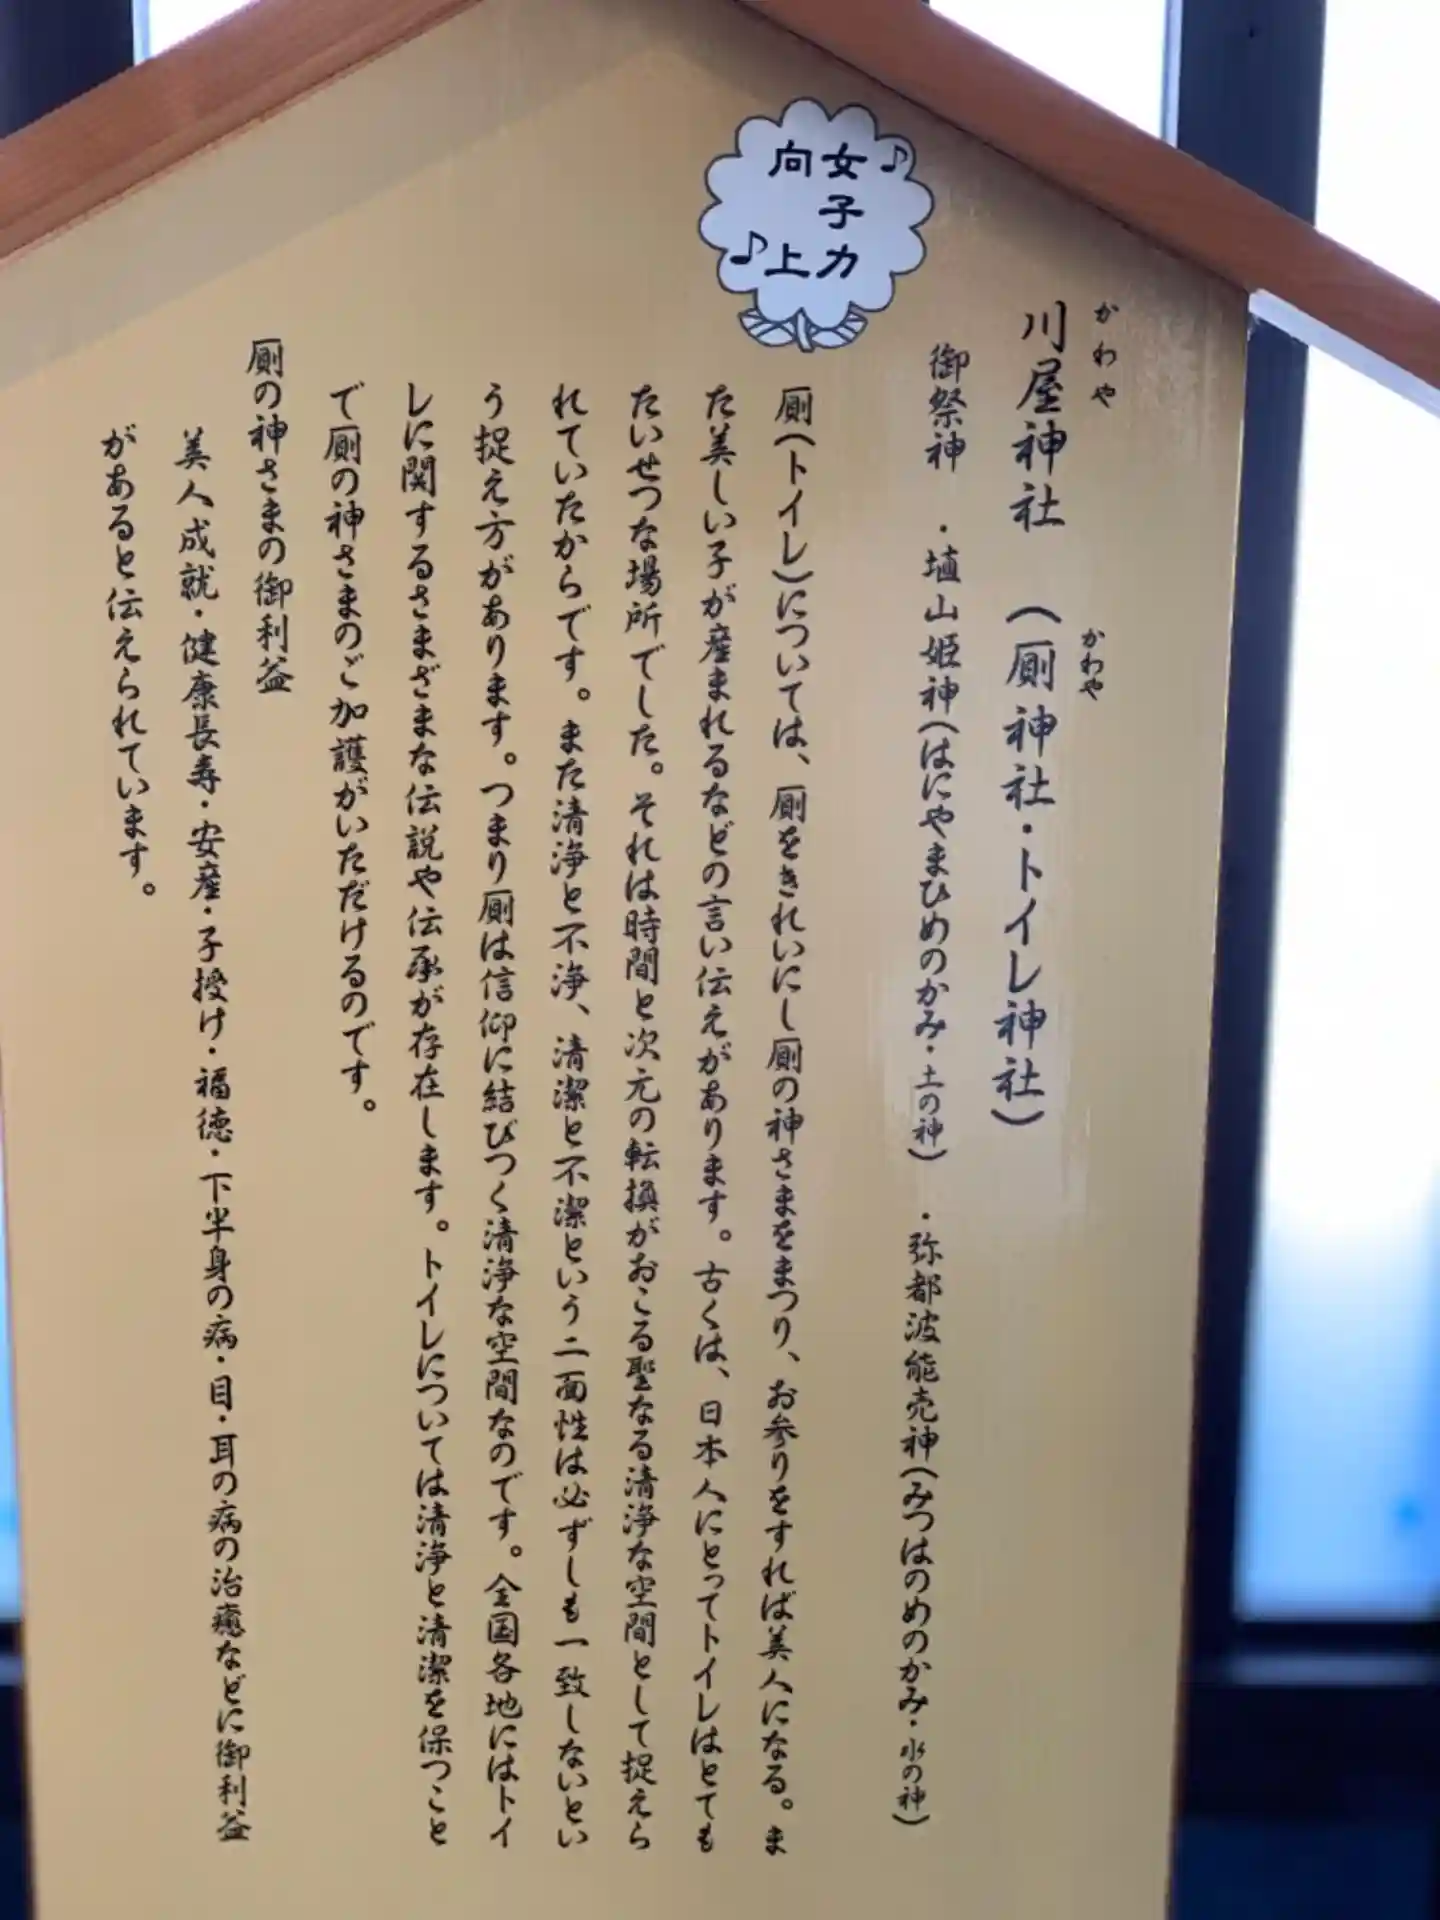 ♪女子力
向上♪
かわや
川屋神社 (厠神社・トイレ神社)
かわや
御祭神 ・埴山姫神(はにやまひめのかみ・土の神) ・弥都波能売神(みつはのめのかみ・水の神)
厠(トイレ)については、厠をきれいにし厠の神さまをまつり、お参りをすれば美人になる。ま
た美しい子が産まれるなどの言い伝えがあります。古くは、日本人にとってトイレはとても
たいせつな場所でした。それは時間と次元の転換がおこる聖なる清浄な空間として捉えら
れていたからです。また清浄と不浄、清潔と不潔という二面性は必ずしも一致しないとい
う捉え方があります。つまり厠は信仰に結びつく清浄な空間なのです。全国各地にはトイ
レに関するさまざまな伝説や伝承が存在します。トイレについては清浄と清潔を保つこと
で厠の神さまのご加護がいただけるのです。
厠の神さまの御利益
美人成就・健康長寿・安産・子授け・福徳・下半身の病・目・耳の病の治癒などに御利益
があると伝えられています。